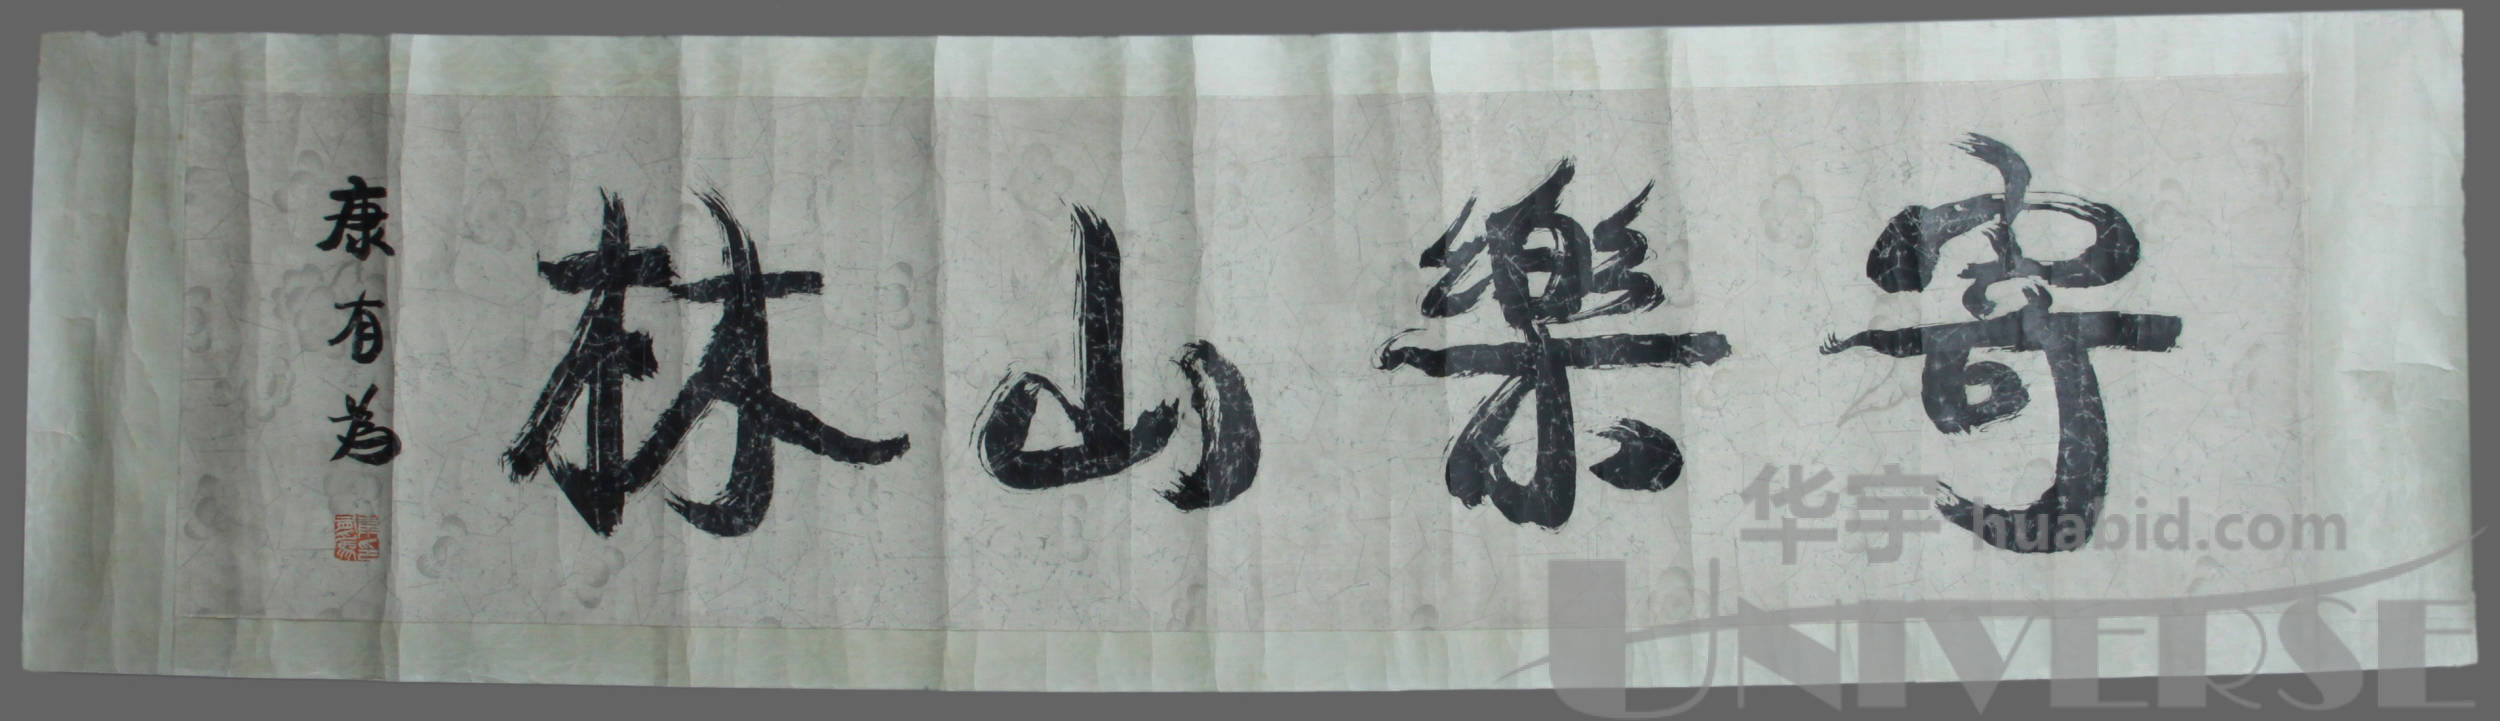 寄樂山林
康有為
华宇 huabid.com
UNIVERSE